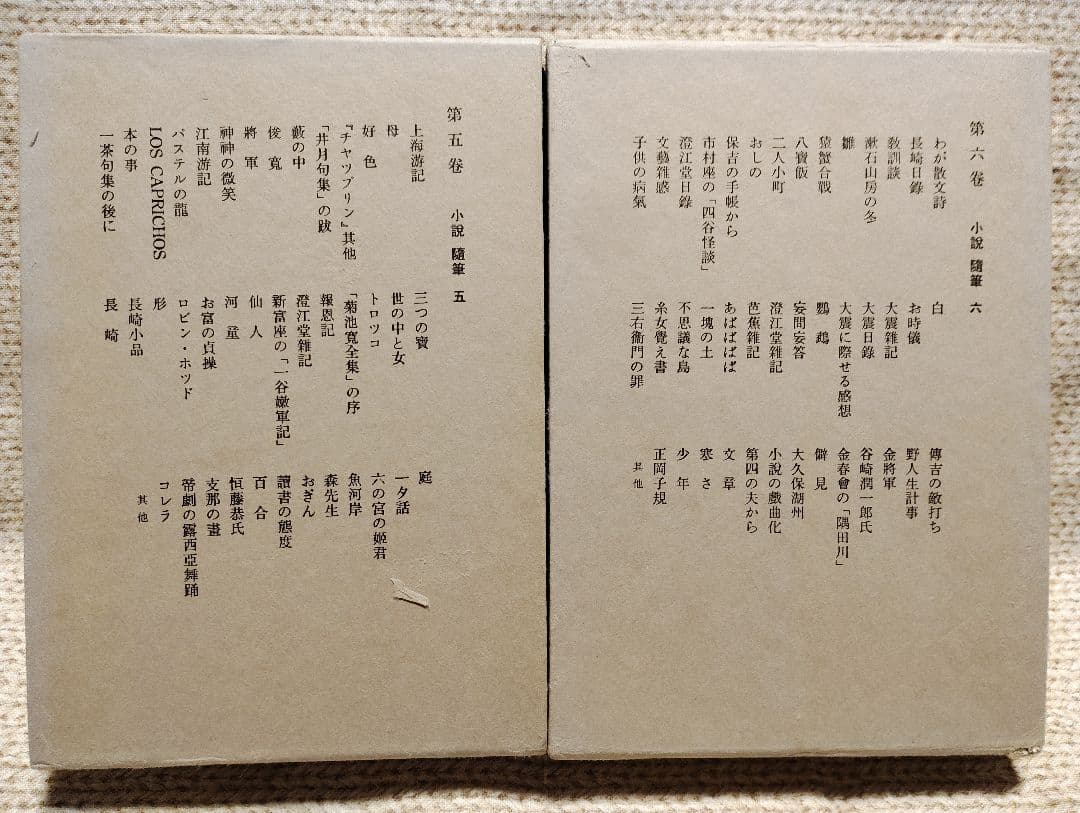 第六卷 小說 隨筆 六
わが散文詩
長崎日錄
敎訓談
漱石山房の冬
雛
猿蟹合戰
八寶飯
二人小町
おしの
保吉の手帳から
市村座の「四谷怪談」
澄江堂日錄
文藝雜感
子供の病氣
白
お時儀
大震雜記
大震日錄
大震に際せる感想
鸚鵡
妄問妄答
澄江堂雜記
芭蕉雜記
あばばばば
一塊の土
不思議な島
糸女覺え書
三右衞門の罪
傳吉の敵打ち
野人生計事
金將軍
谷崎潤一郎氏
金春會の「隅田川」
僻見
大久保湖州
小說の戲曲化
第四の夫から
文章
寒さ
少年
正岡子規
其他
第五卷 小說 隨筆 五
上海游記
母
好色
「チャップリン」其他
「井月句集」の跋
藪の中
俊寬
將軍
神神の微笑
江南游記
パステルの龍
LOS CAPRICHOS
本の事
一茶句集の後に
三つの寶
世の中と女
トロツコ
「菊池寬全集」の序
報恩記
澄江堂雜記
新富座の「一谷嫩軍記」
仙人
河童
お富の貞操
ロビン・ホツド
形
長崎小品
長崎
庭
一夕話
六の宮の姬君
魚河岸
森先生
おぎん
讀書の態度
百合
恒藤恭氏
支那の畫
帝劇の露西亞舞踊
コレラ
其他